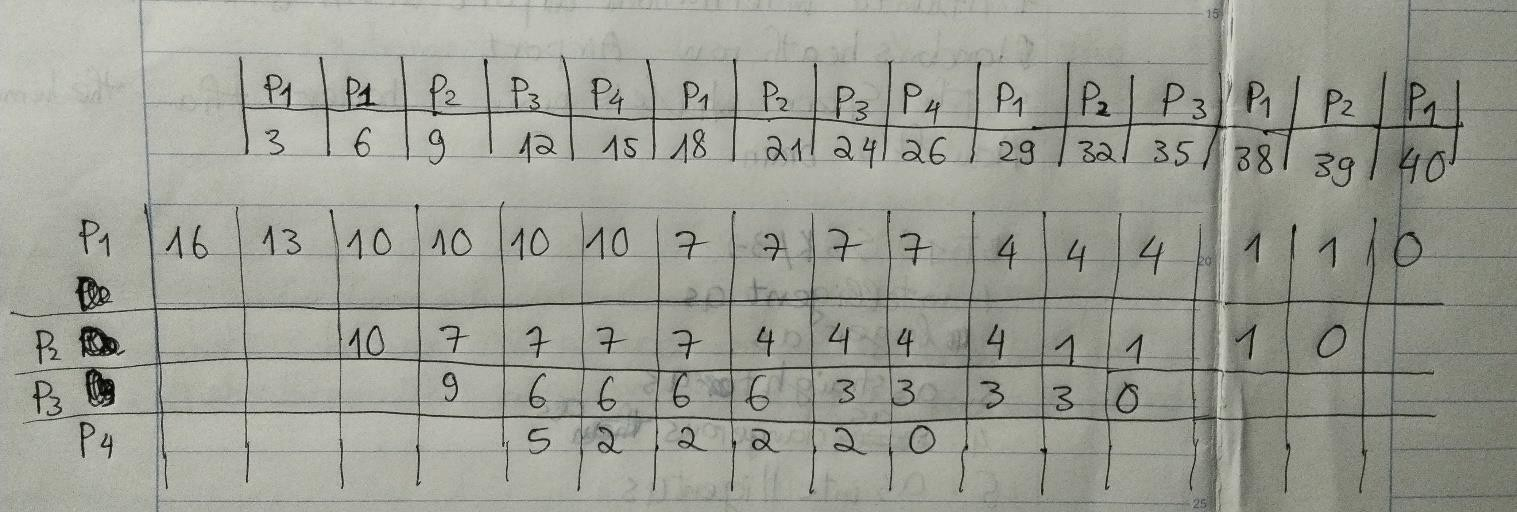 P1 P1 P2 P3 P4 P1 P2 P3 P4 P1 P2 P3 P1 P2 P1
3 6 9 12 15 18 21 24 26 29 32 35 38 39 40
P1 16 13 10 10 10 10 7 7 7 7 4 4 4 1 1 0
P2 10 7 7 7 7 4 4 4 4 1 1 1 0
P3 9 6 6 6 6 3 3 3 3 0
P4 5 2 2 2 2 0
15
20
25